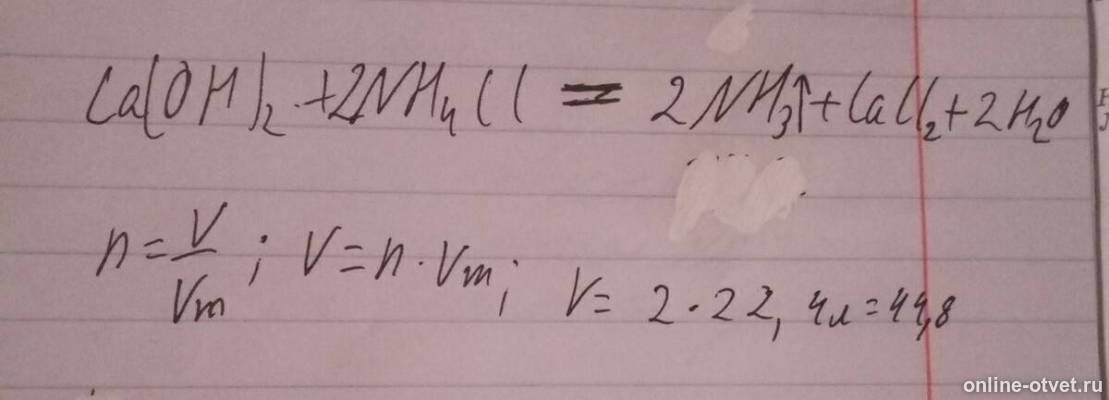 Ca(OH)₂ + 2NH₄Cl = 2NH₃↑ + CaCl₂ + 2H₂O
n = V/Vm ; V = n · Vm ; V = 2 · 22,4л = 44,8
online-otvet.ru